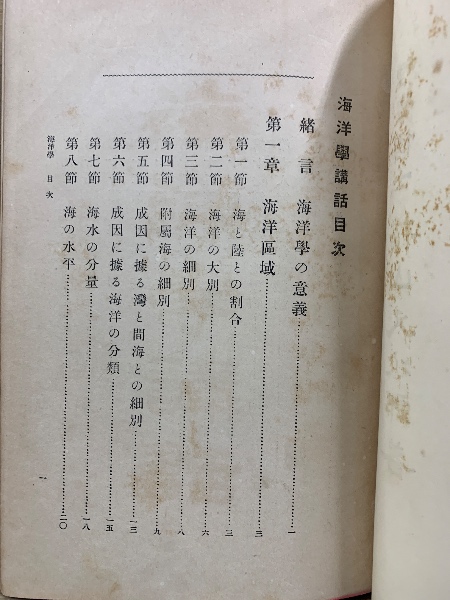 海洋學講話目次
緒言 海洋學の意義……一
第一章 海洋區域……三
第一節 海と陸との割合……三
第二節 海洋の大別……六
第三節 海洋の細別……八
第四節 附屬海の細別……九
第五節 成因に據る灣と間海との細別……一三
第六節 成因に據る海洋の分類……一五
第七節 海水の分量……一八
第八節 海の水平……二〇
海洋學 目次
一